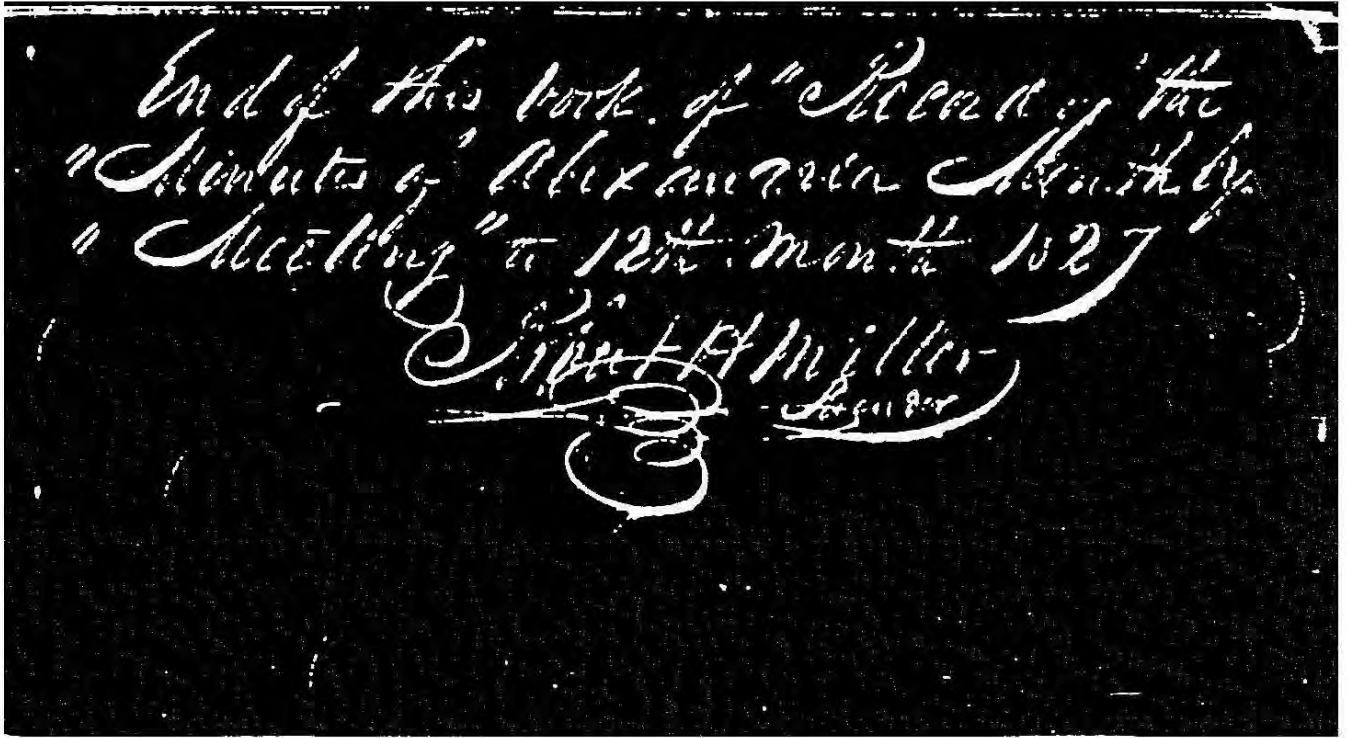 End of this book. of "Record of the
"Minutes of Alexandria Monthly
"Meeting" to 12th month 1827
Robert H Miller